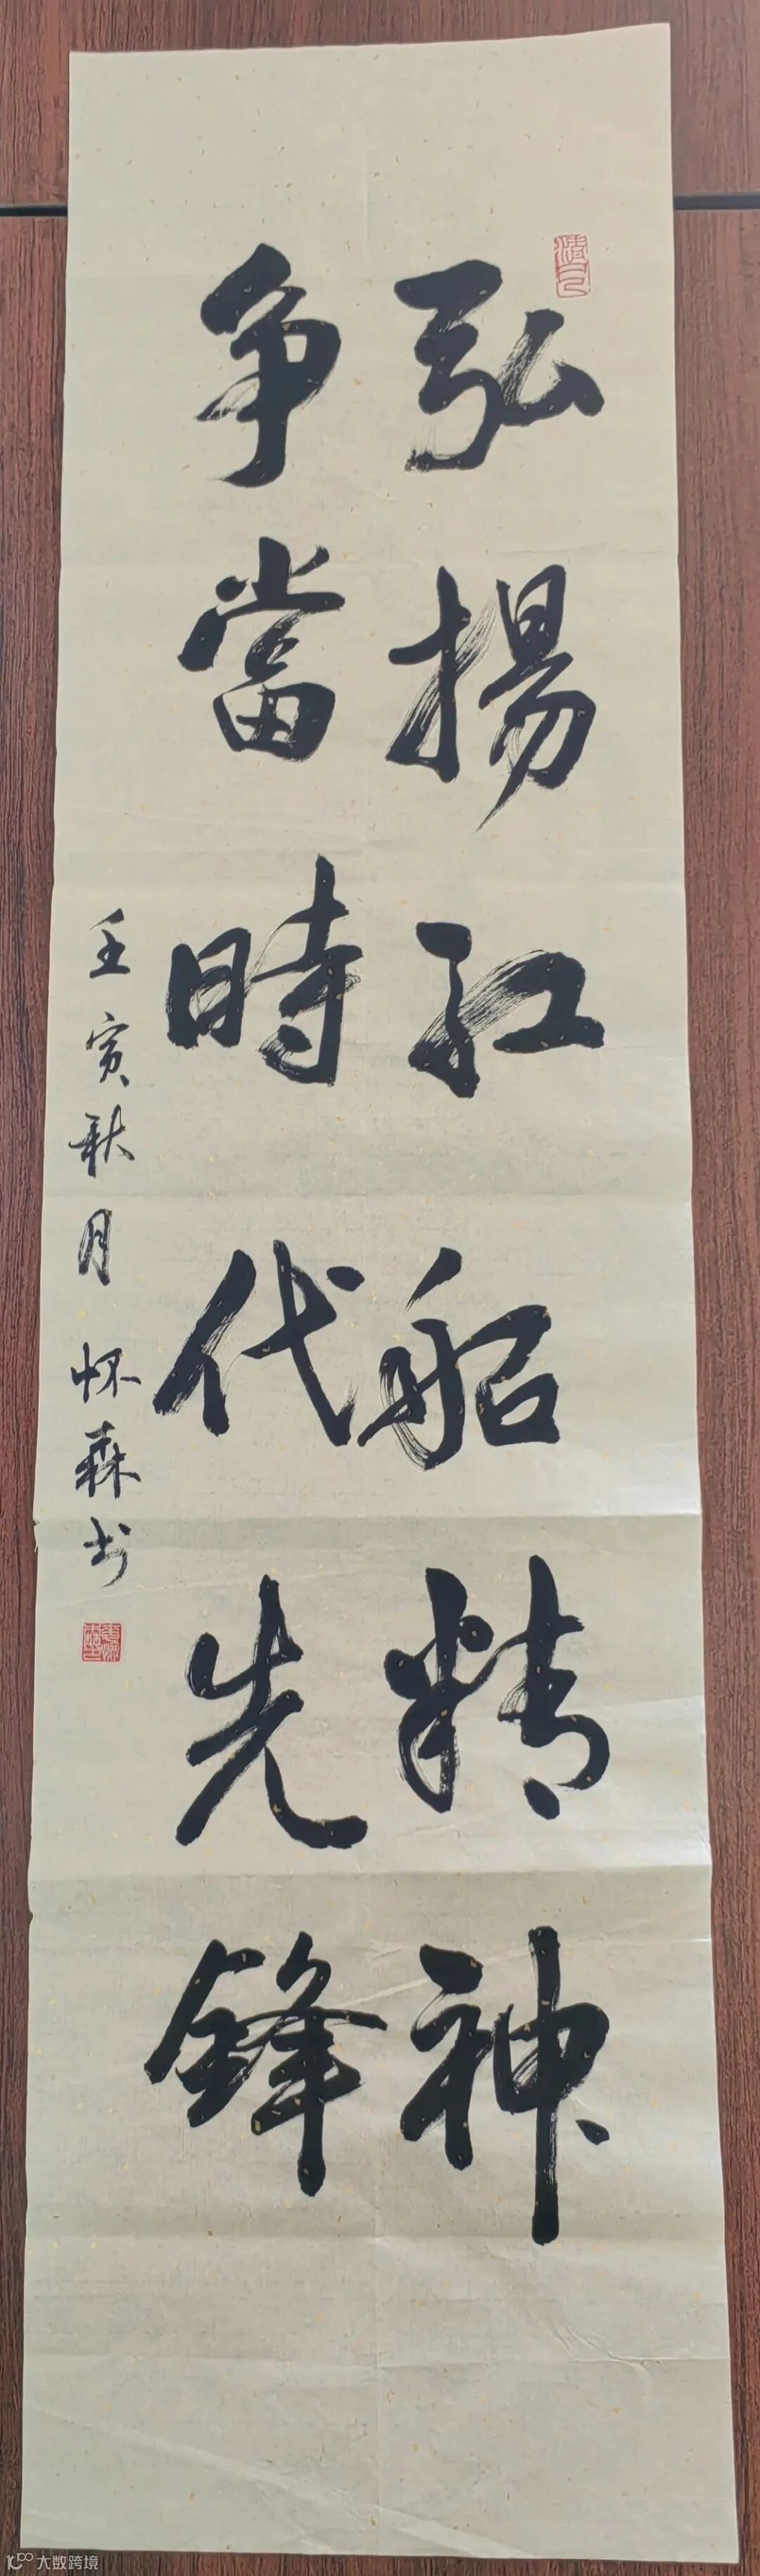 弘揚红船精神
争當時代先鋒
壬寅秋月怀森书
大数跨境